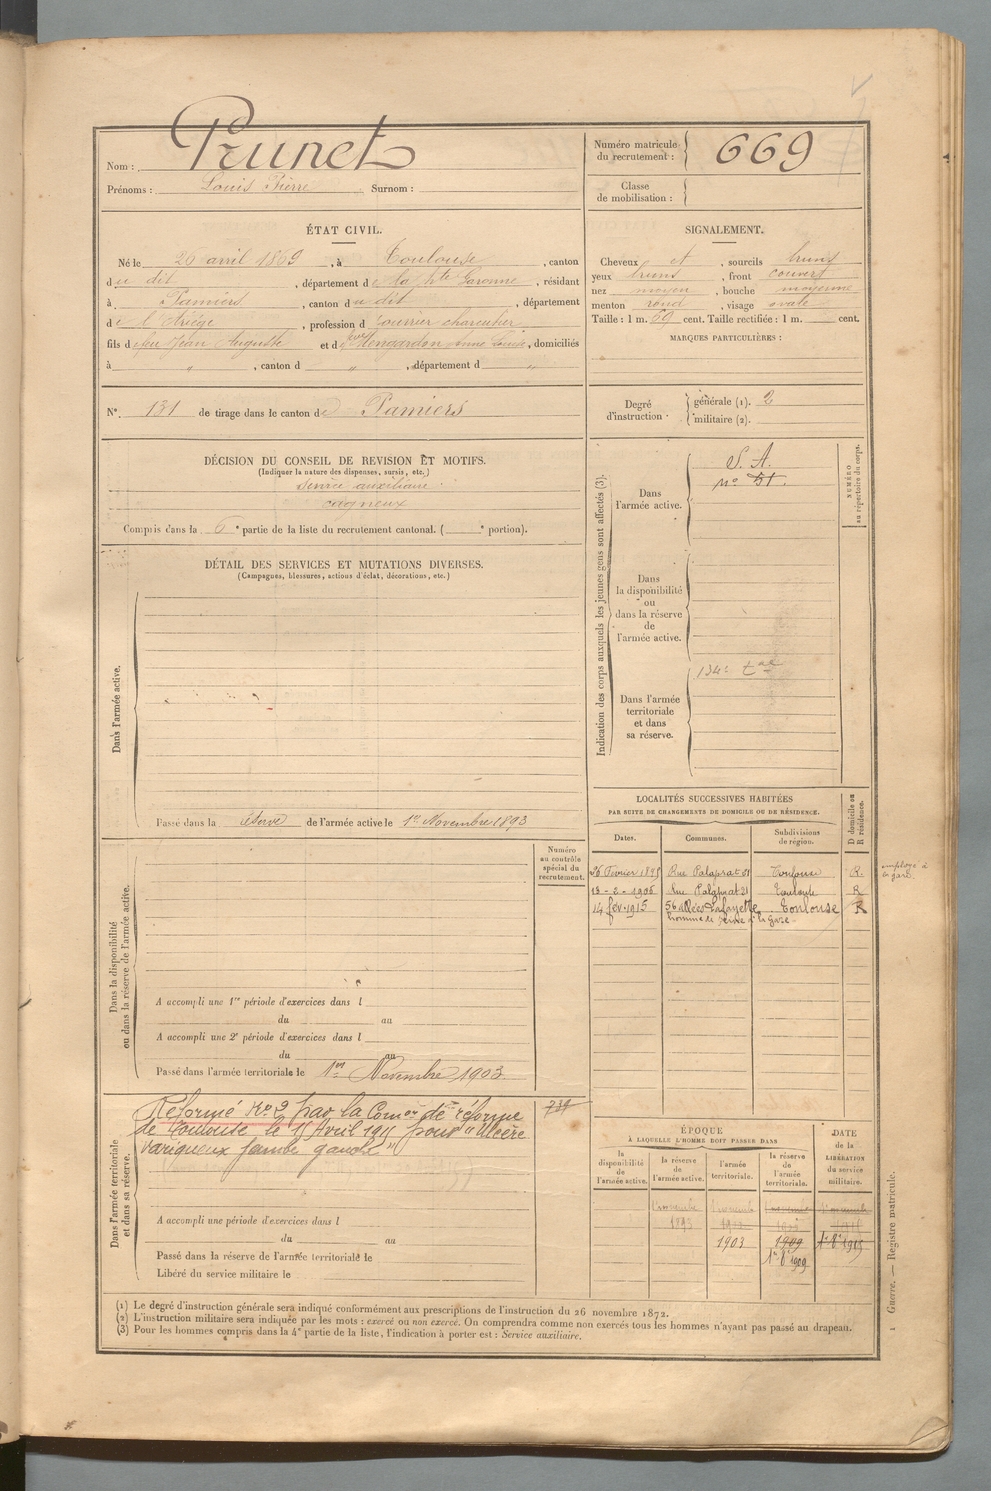 Nom : Prunet
Prénoms : Louis Pierre Surnom :
Numéro matricule du recrutement : 669
Classe de mobilisation :
ÉTAT CIVIL.
Né le 26 avril 1869, à Toulouse, canton
du dit, département de la hte Garonne, résidant
à Pamiers, canton du dit, département
de l'Ariège, profession d'ouvrier charcutier
fils de feu Jean Auguste et de Anne Louise, domiciliés
à " , canton d " , département d "
SIGNALEMENT.
Cheveux et, sourcils bruns
yeux bruns, front couvert
nez moyen, bouche moyenne
menton rond, visage ovale
Taille : 1 m. 59 cent. Taille rectifiée : 1 m. cent.
MARQUES PARTICULIÈRES :
N° 131 de tirage dans le canton de Pamiers
Degré d'instruction
générale (1). 2
militaire (2).
DÉCISION DU CONSEIL DE REVISION ET MOTIFS.
(Indiquer la nature des dispenses, sursis, etc.)
Service auxiliaire
cagneux
Compris dans la 6e partie de la liste du recrutement cantonal. ( e portion).
DÉTAIL DES SERVICES ET MUTATIONS DIVERSES.
(Campagnes, blessures, actions d'éclat, décorations, etc.)
Dans l'armée active.
Passé dans la réserve de l'armée active le 1er Novembre 1893
Indication des corps auxquels les jeunes gens sont affectés (3).
NUMÉRO au répertoire du corps.
Dans l'armée active.
S. A.
n° 51.
Dans la disponibilité ou dans la réserve de l'armée active.
Dans l'armée territoriale et dans sa réserve.
134e tal
LOCALITÉS SUCCESSIVES HABITÉES
PAR SUITE DE CHANGEMENTS DE DOMICILE OU DE RÉSIDENCE.
Dates. Communes. Subdivisions de région. D domicile ou R résidence.
Rue Palaprat 21 Toulouse R.
employé à la gare
13 - 2 - 1906 Rue Palaprat 21 Toulouse R
14 fév. 1915 56 allées Lafayette Toulouse R
homme de peine à la gare
Numéro au contrôle spécial du recrutement.
Dans la disponibilité ou dans la réserve de l'armée active.
A accompli une 1re période d'exercices dans l
du au
A accompli une 2e période d'exercices dans l
du au
Passé dans l'armée territoriale le 1er Novembre 1903
Dans l'armée territoriale et dans sa réserve.
739
Réformé No 2 par la Comon de réforme
de Toulouse le 15 Avril 1915 pour "Ulcère
variqueux jambe gauche"
A accompli une période d'exercices dans l
du au
Passé dans la réserve de l'armée territoriale le
Libéré du service militaire le
ÉPOQUE
À LAQUELLE L'HOMME DOIT PASSER DANS
la disponibilité de l'armée active.
la réserve de l'armée active.
l'armée territoriale.
la réserve de l'armée territoriale.
DATE de la LIBÉRATION du service militaire.
1893
1903 1909 1er 8bre 1915
1er 8bre 1909
(1) Le degré d'instruction générale sera indiqué conformément aux prescriptions de l'instruction du 26 novembre 1872.
(2) L'instruction militaire sera indiquée par les mots : exercé ou non exercé. On comprendra comme non exercés tous les hommes n'ayant pas passé au drapeau.
(3) Pour les hommes compris dans la 4e partie de la liste, l'indication à porter est : Service auxiliaire.
1 Guerre. — Registre matricule.